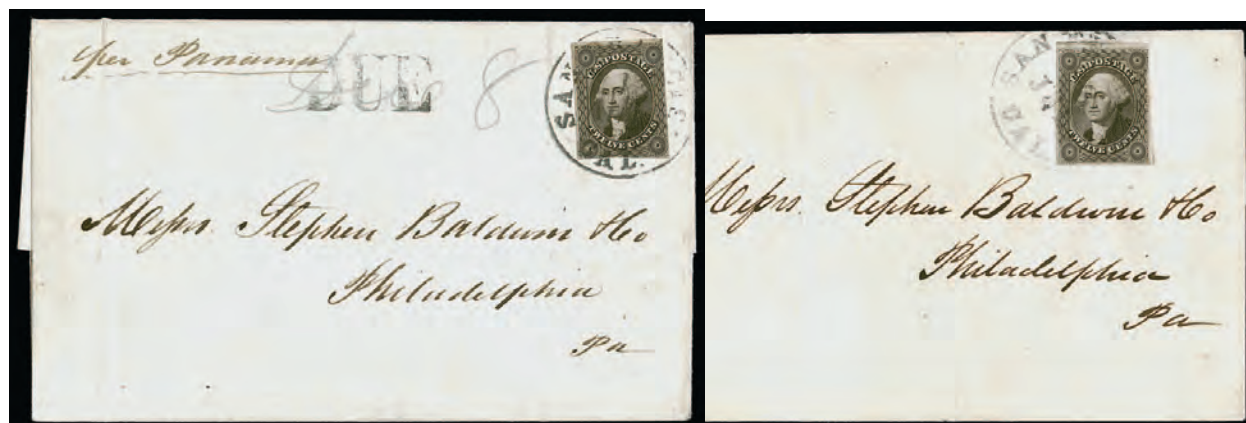 per Panama
DUE
8
U.S. POSTAGE
TWELVE CENTS
SAN
AL.
Messrs. Stephen Baldwin & Co
Philadelphia
Pa
SAN
U.S. POSTAGE
TWELVE CENTS
Messrs. Stephen Baldwin & Co
Philadelphia
Pa